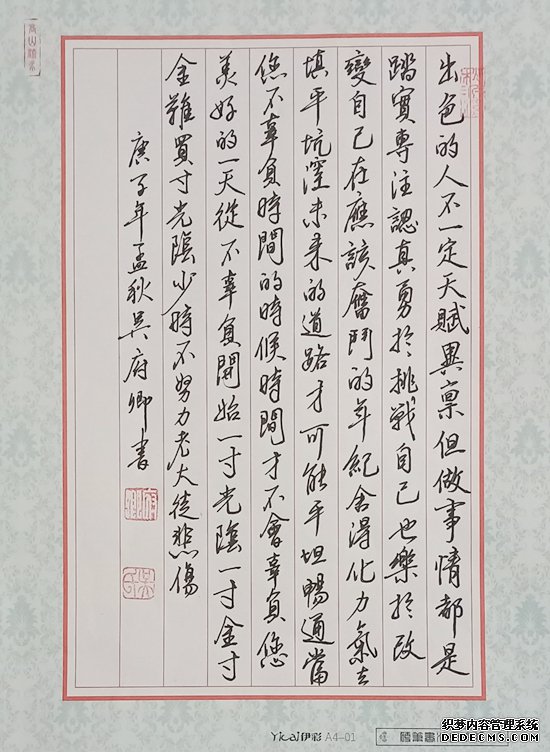 出色的人不一定天賦異禀但做事情都是
踏實專注認真勇於挑戰自己也樂於改
變自己在應該奮鬥的年紀舍得化力氣去
填平坑漥未来的道路才可能平坦暢通當
您不辜負時間的時候時間才不會辜負您
美好的一天從不辜負開始一寸光陰一寸金寸
金難買寸光陰少時不努力老大徒悲傷
庚子年孟秋吴府卿書
Yicai伊彩 A4-01
织梦内容管理系统
DEDECMS.COM